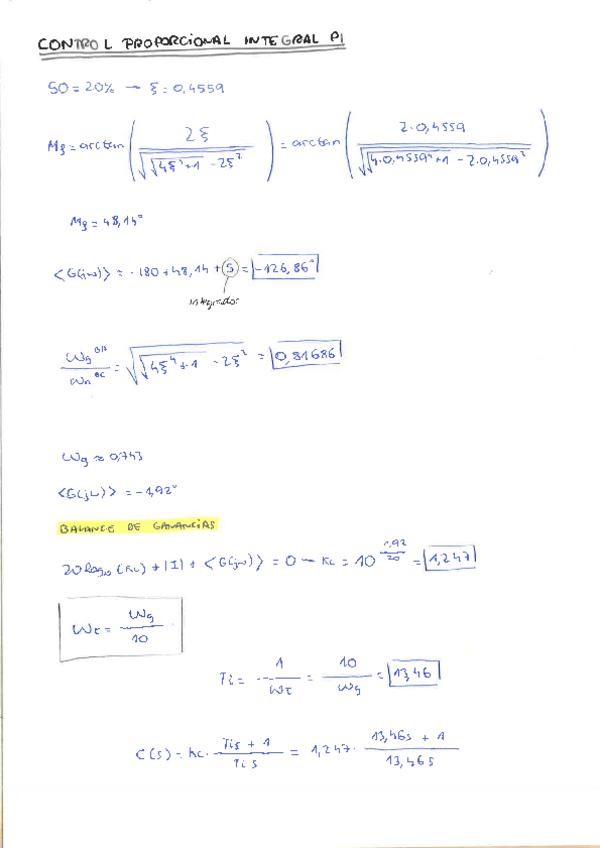 CONTROL PROPORCIONAL INTEGRAL PI
SO = 20% → ξ: 0,4559
Mξ = arctan( 2ξ / √(√(4ξ⁴+1) - 2ξ²) ) = arctan( 2·0,4559 / √(√(4·0,4559⁴+1) - 2·0,4559²) )
Mξ = 48,14°
<G(jω)> = -180 + 48,14 + 5 = -126,86°
integrador
ωg / ωn = √(√(4ξ⁴+1) - 2ξ²) = 0,81686
ωg ≈ 0,743
<G(jω)> = -1,92°
BALANCE DE GANANCIAS
20 log₁₀(Kc) + |I| + <G(jω)> = 0 → Kc = 10^(1,92/20) = 1,247
ωτ = ωg / 10
Ti = 1 / ωτ = 10 / ωg = 13,46
C(s) = Kc · (Tis + 1) / (Tis) = 1,247 · (13,46s + 1) / (13,46s)